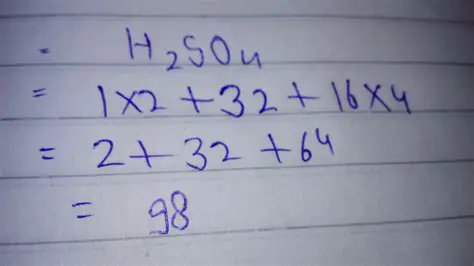 - H₂SO₄
= 1×2 + 32 + 16×4
= 2 + 32 + 64
= 98